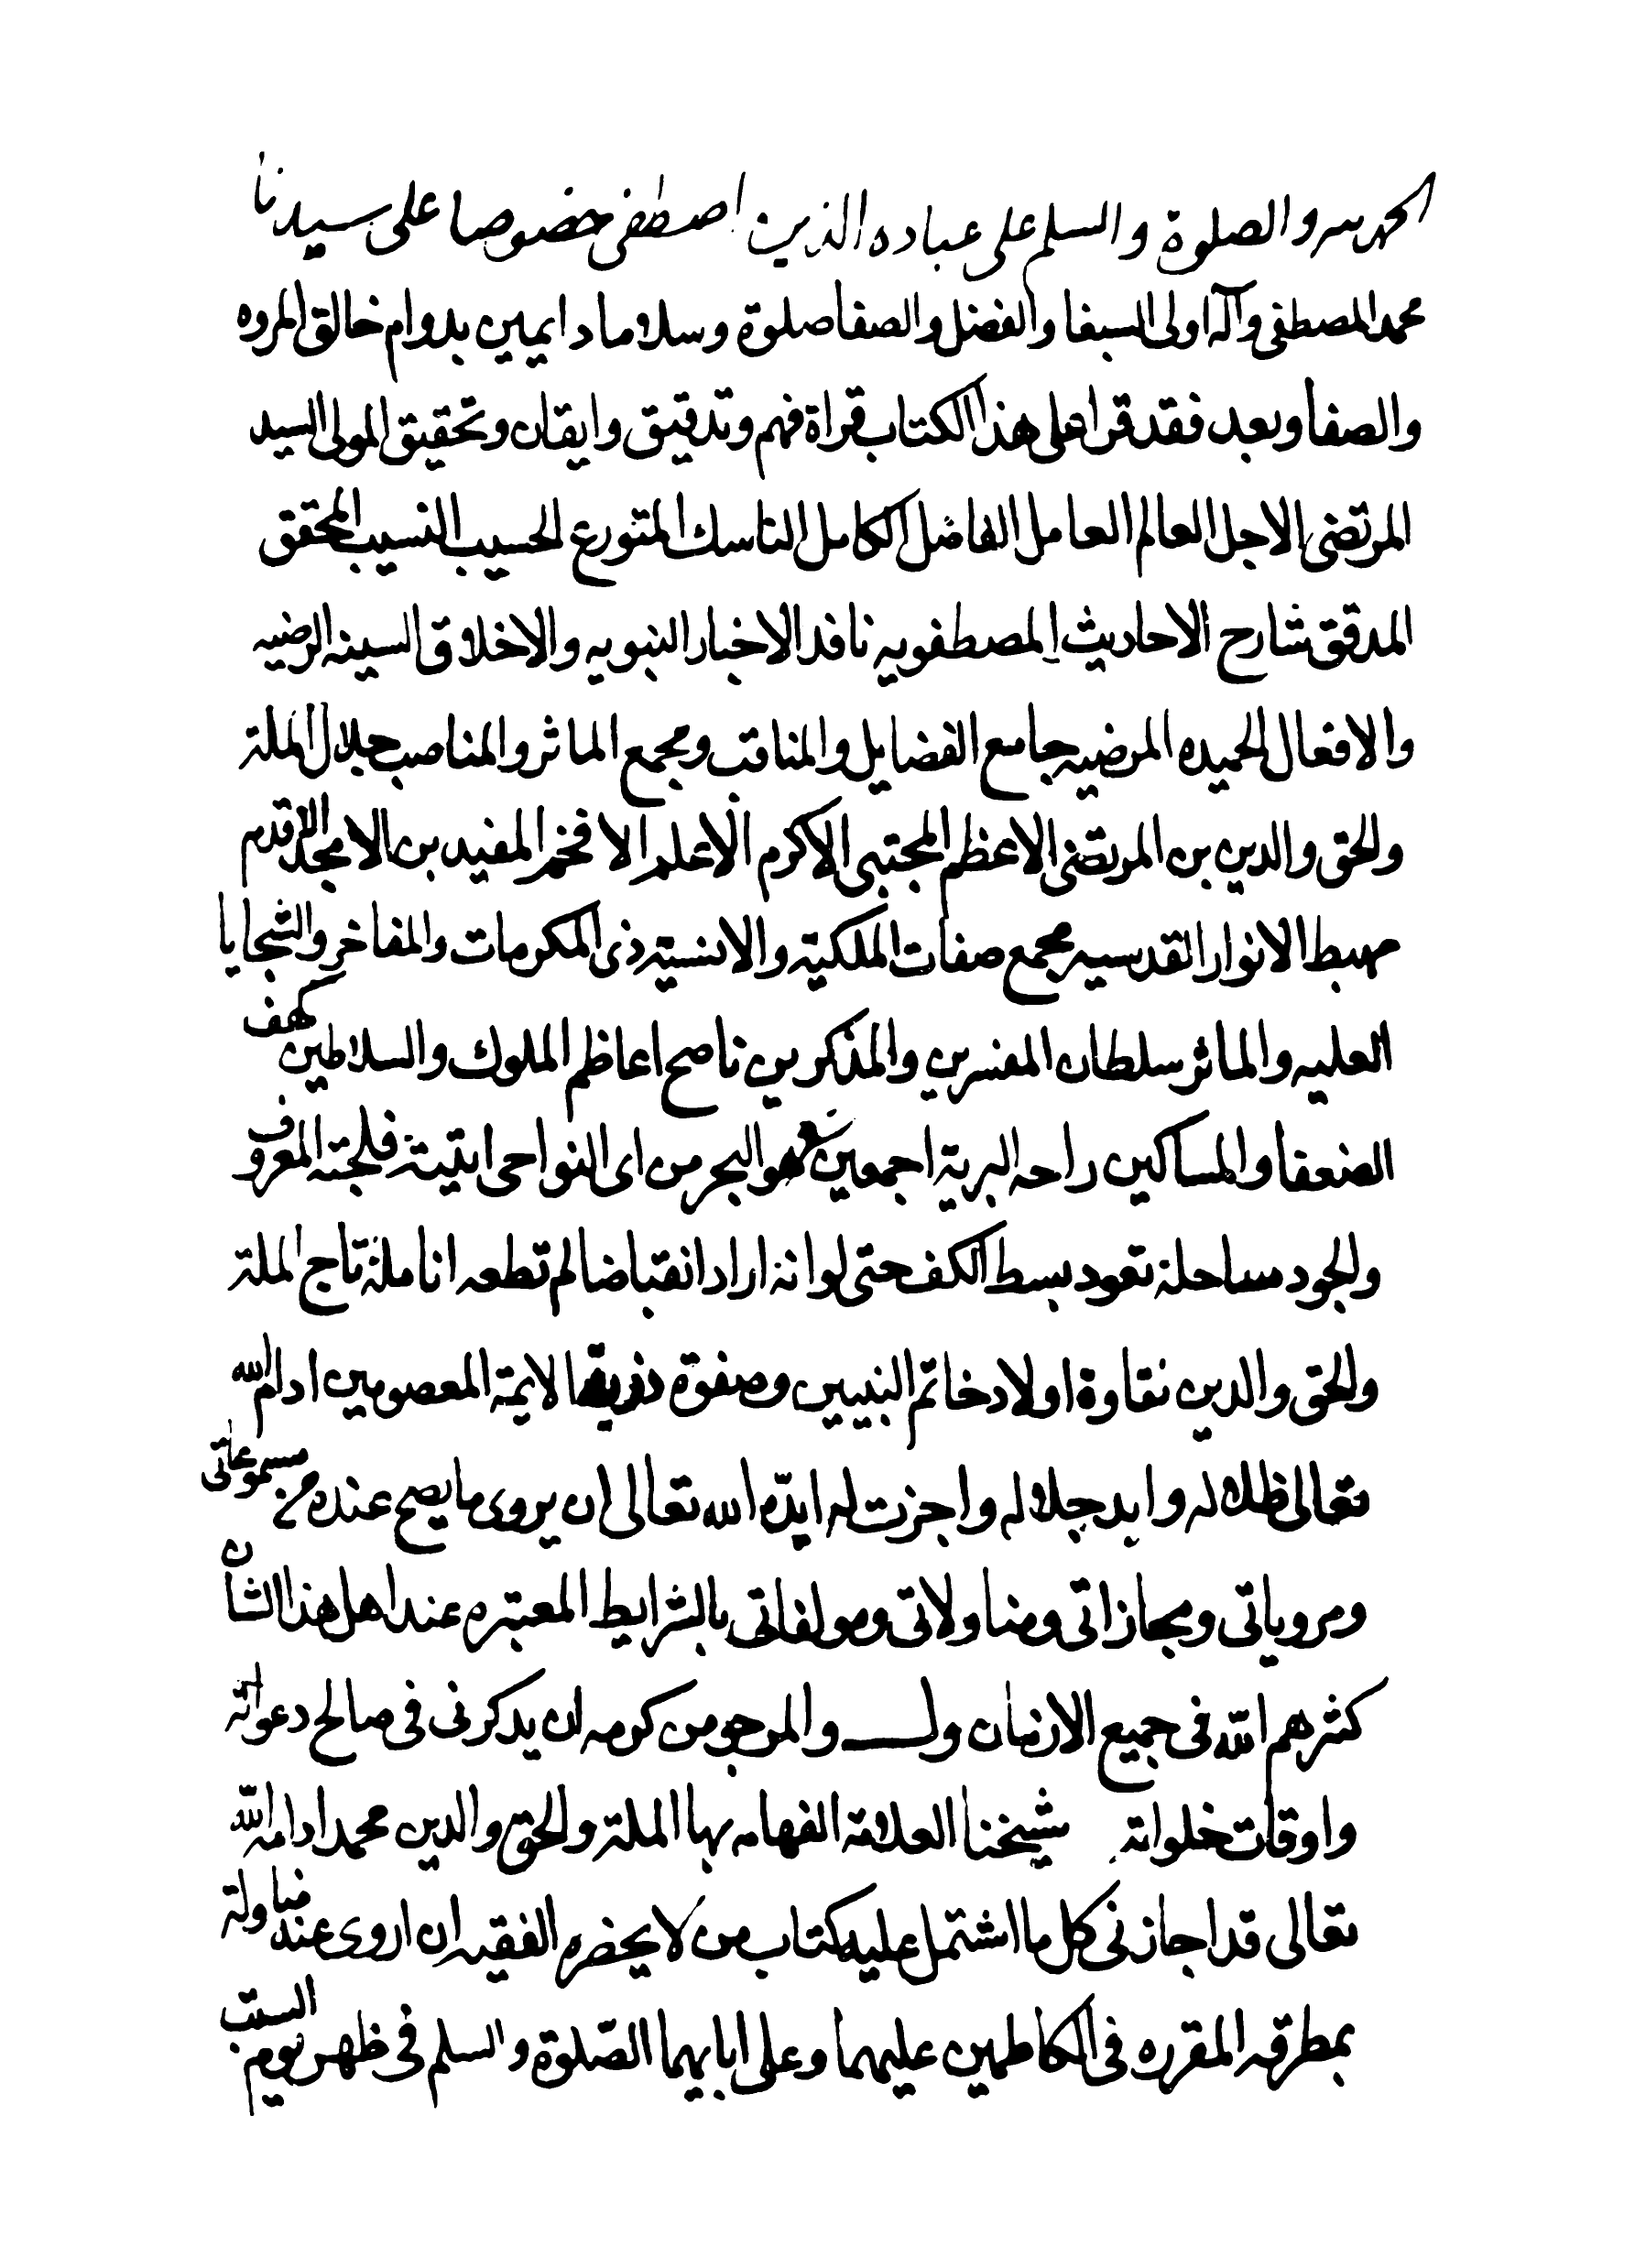 الحمد لله والصلوة والسلم على عباده الذين اصطفى خصوصا على سيدنا
محمد المصطفى وآله اولى السيفا والفضل والصفا صلوة وسلاما دايمين بدوام خالق المروه
والصفا وبعد فقد قرا على هذا الكتاب قراة فهم وتدقيق وايقان وتحقيق المولى السيد
المرتضى الاجل العالم العامل الفاضل الكامل الناسك المتورع الحسيب النسيب المحقق
المدقق شارح الاحاديث المصطفويه ناقد الاخبار النبويه والاخلاق السينه الرضيه
والافعال الحميده المرضيه جامع الفضايل والمناقب ومجمع الماثر والمناصب جلال الملة
والحق والدين بن المرتضى الاعظم المجتبى الاكرم الاعلم الافخم المفيد بن الامجد الاقدم
مهبط الانوار القدسيه مجمع صفات الملكية والانسية ذى المكرمات والمفاخر والشجايا
العليه والماثر سلطان المفسرين والمذكرين ناصح اعاظم الملوك والسلاطين كهف
الضعفا والمساكين راحه البرية اجمعين شعر هو البحر من اى النواحى اتيتة فلجته المعروف
والجود ساحلة تعود بسط الكف حتى لوانه اراد انقباضا لم تطعه انامله تاج الملة
والحق والدين نقاوة اولاد خاتم النبيين وصفوة ذرية الايمة المعصومين ادام الله
تعالى ظلاله وابد جلاله واجزت له ايده الله تعالى ان يروى ما يصح عنده من مسموعاتى
ومروياتى ومجازاتى ومناولاتى ومولفاتى بالشرايط المعتبره عند اهل هذا الشان
كثرهم الله فى جميع الازمان ول والمرجو من كرمه ان يدكرنى فى صالح دعواته
واوقات خلواته شيخنا العلامة الفهامه بها الملة والحق والدين محمد ادامه الله
تعالى قد اجازنى كل ما اشتمل عليه كتاب من لا يحضره الفقيه ان اروى عنه مناولة
بمطرقه المقرره فى الكاظمين عليهما وعلى ابايهما الصلوة والسلم فى ظهر يوم السبت